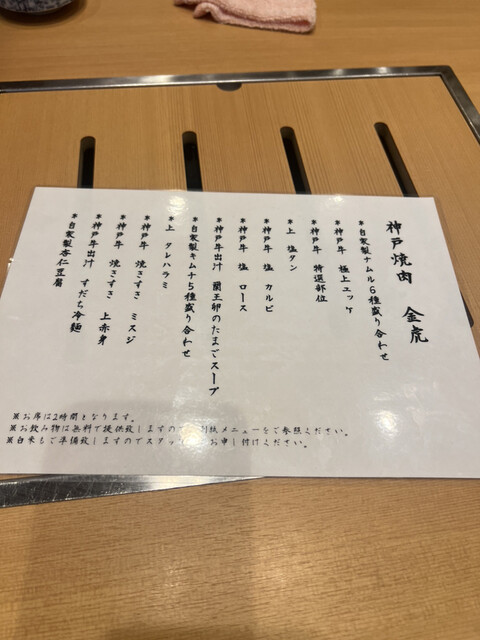 神戸焼肉 金虎
*自家製ナムル6種盛り合わせ
*神戸牛 極上ユッケ
*神戸牛 特選部位
*上 塩タン
*神戸牛 塩 カルビ
*神戸牛 塩 ロース
*神戸牛出汁 蘭王卵のたまごスープ
*自家製キムチ5種盛り合わせ
*上 タレハラミ
*神戸牛 焼きすき ミスジ
*神戸牛 焼きすき 上赤身
*神戸牛出汁 すだち冷麺
*自家製杏仁豆腐
※お席は2時間となります。
※お飲み物は無料で提供致しますの 別紙メニューをご参照ください。
※白米もご準備致しますのでスタッ お申し付けください。